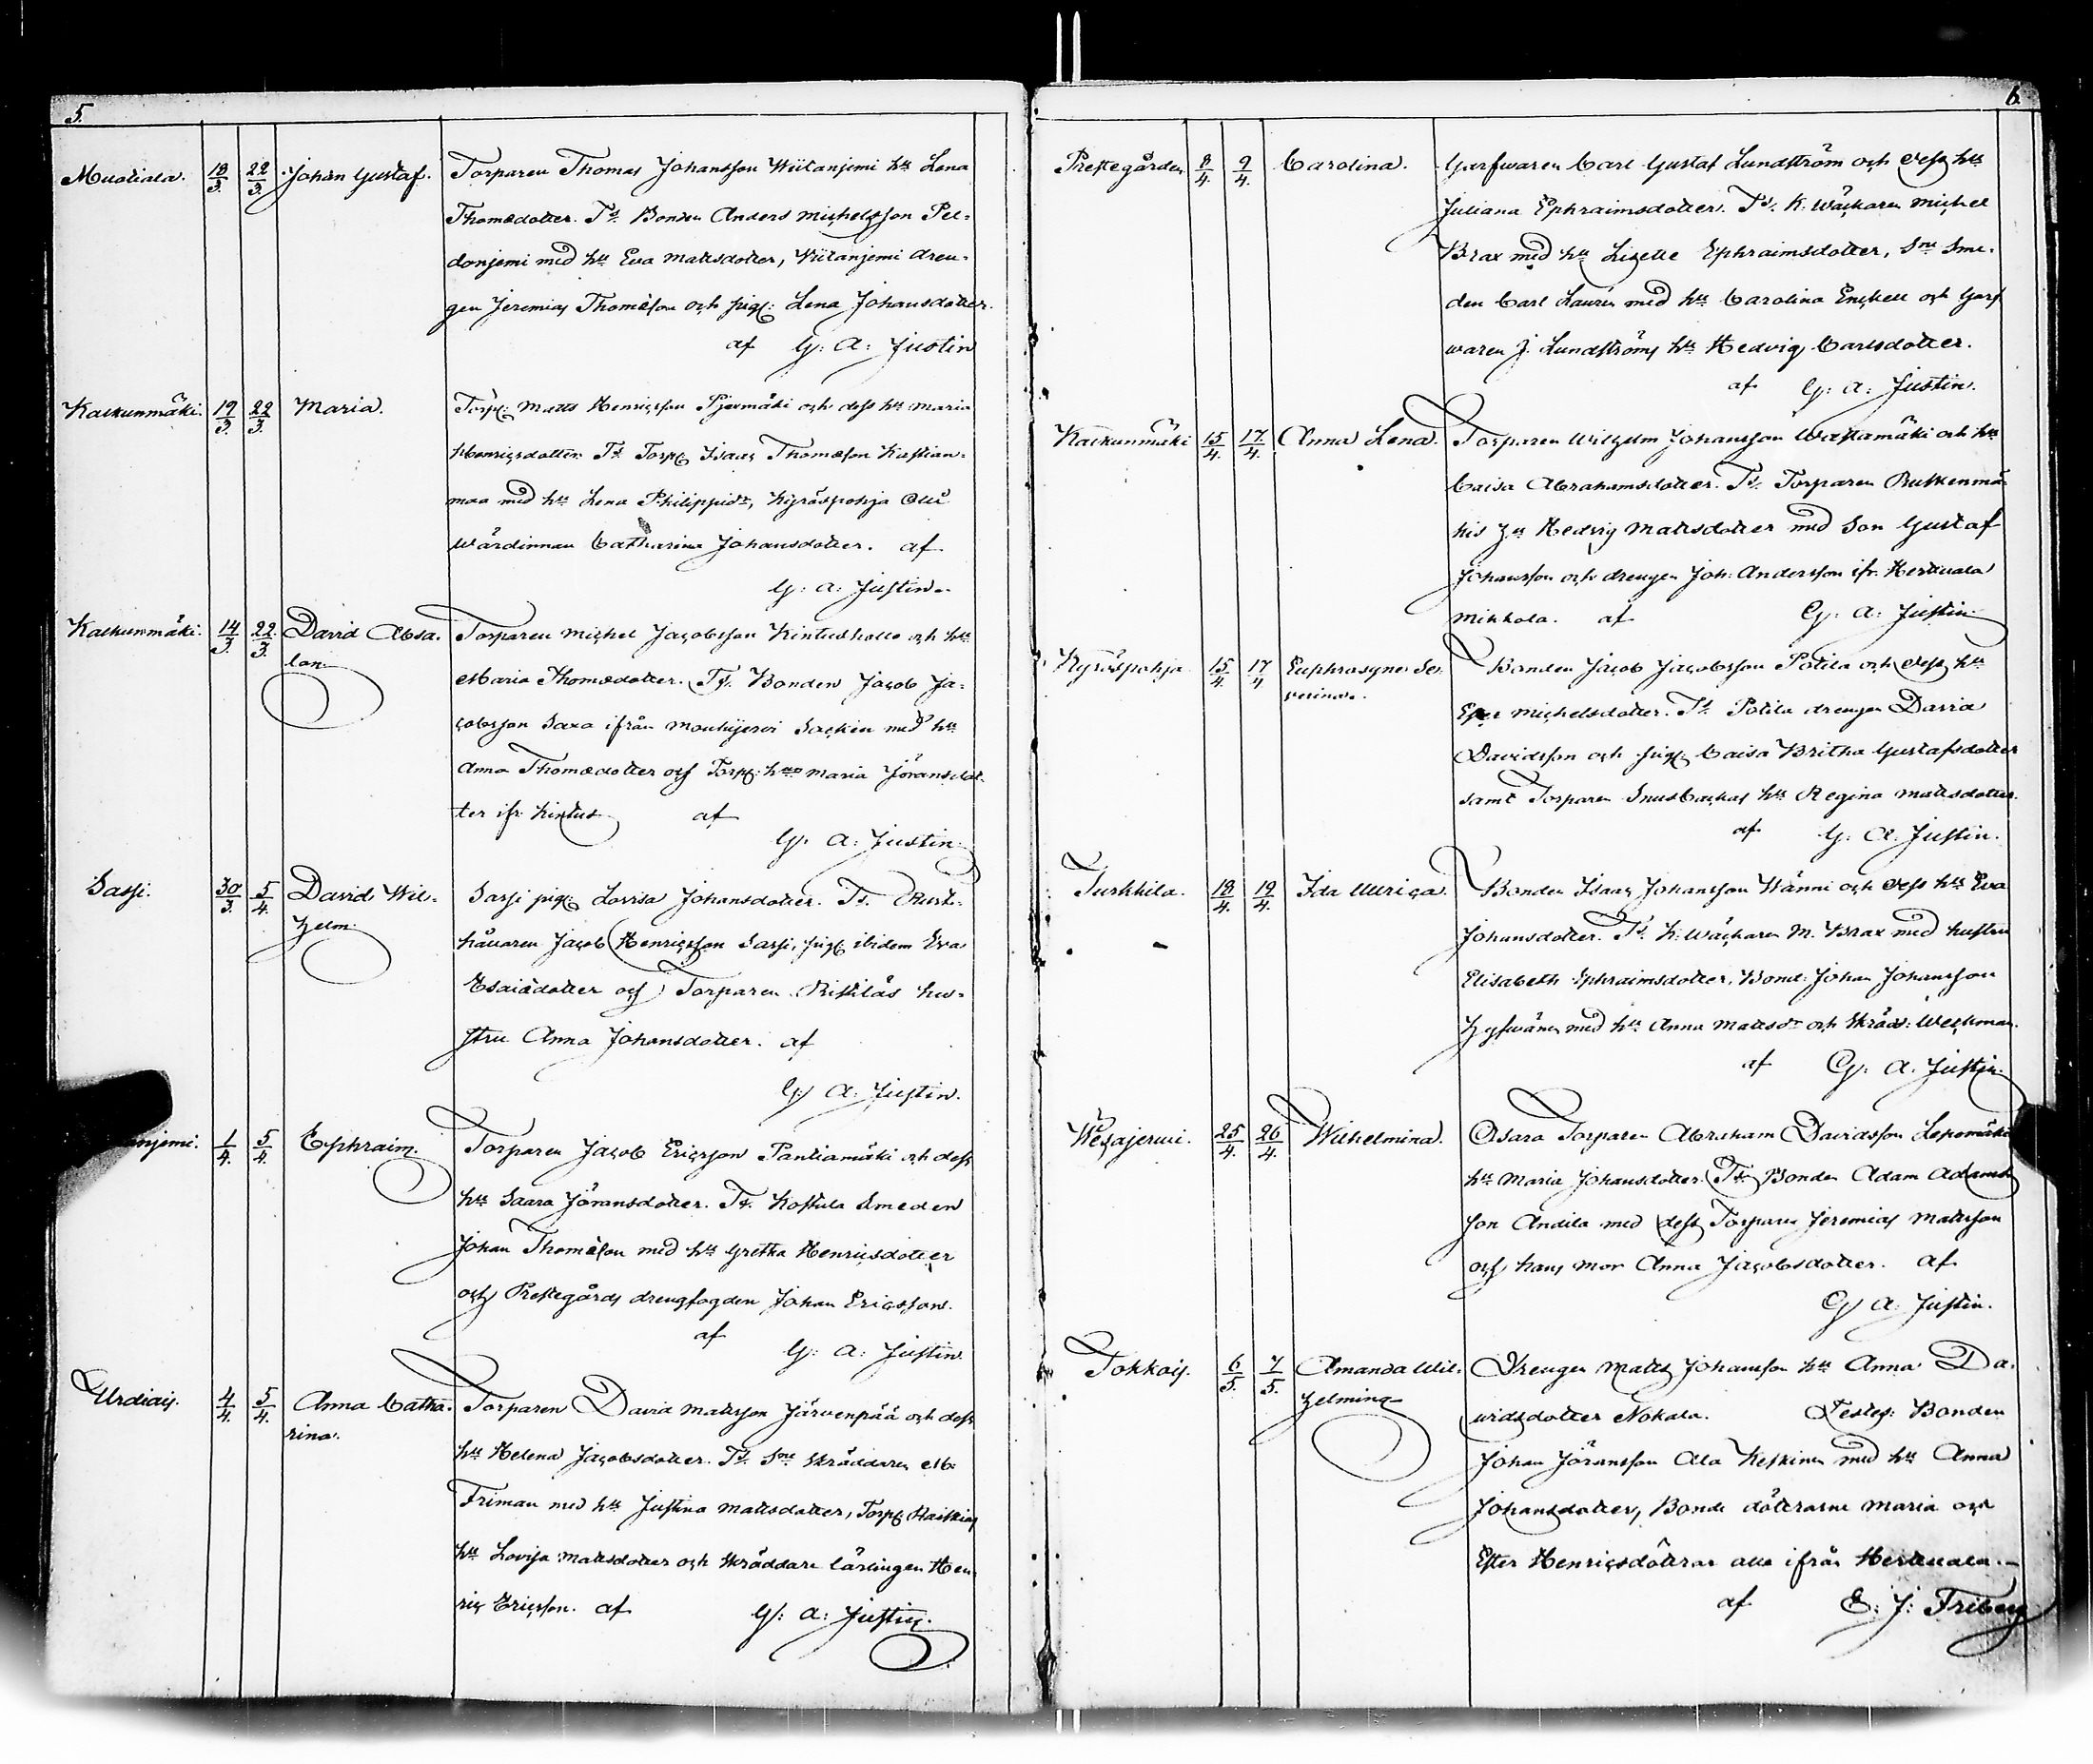 5.
Muotiala. 18/3. 22/3. Johan Gustaf. Torparen Thomas Johansson Wiitanjemi hu Lena
Thomædotter. Tt. Bonden Anders Michelsson Pel-
donjemi med hu Eva Mattsdotter, Wiitanjemi dren-
gen Jeremias Thomæson och pig: Lena Johansdotter.
af G: A: Justin
Kalkunmäki. 19/3. 22/3. Maria. Torp: Matts Henricsson Pjexmäki och dess hu Maria
Henricsdotter. Tt. Torp: Isaac Thomæson Kastian-
maa med hu Lena Philippsdr, Kyröspohja Olli
Wärdinnan Catharina Johansdotter. af
G: A: Justin.
Kalkunmäki. 14/3. 22/3. David Absa- Torparen Michel Jacobsson Kintuskallo och hu
lon. Maria Thomædotter. Tt. Bonden Jacob Ja-
cobsson Saxa ifrån Mouhijervi Sackin med hu
Anna Thomædotter och Torp: hu Maria Jöransdot-
ter ifr. Kintus af
G. A: Justin.
Sassi. 30/3. 5/4. David Wil- Sassi pig: Lovisa Johansdotter. Tt. Rust-
helm. hållaren Jacob Henricsson Sassi, pig: ibidem Eva
Esaiædotter och Torparen Ristiläs hu-
stru Anna Johansdotter. af
G: A: Justin.
njemi. 1/4. 5/4. Ephraim. Torparen Jacob Ericsson Pantiamäki och dess
hu Saara Jöransdotter. Tt. Koskula Smeden
Johan Thomæson med hu Gretha Henricsdotter
och Prestegårds drengfogden Johan Ericsson.
af G: A: Justin.
Urdiais. 4/4. 5/4. Anna Catha- Torparen David Mattsson Järvenpää och dess
rina. hu Helena Jacobsdotter. Tt. Sne Skräddaren M:
Friman med hu Justina Mattsdotter, Torp: Raiskias
hu Lovisa Mattsdotter och Skräddare lärlingen Hen-
ric Ericsson. af G: A: Justin.
6.
Prestegården 8/4. 9/4. Carolina. Garfwaren Carl Gustaf Lundström och dess hu
Juliana Ephraimsdotter. Tt. K: Wäckaren Michel
Brax med hu Lisette Ephraimsdotter, Sne Sme-
den Carl Laurin med hu Carolina Enckell och Garf
waren J. Lundströms hu Hedvig Carlsdotter.
af G: A: Justin.
Kalkunmäki 15/4. 17/4. Anna Lena. Torparen Wilhelm Johansson Wastamäki och hu
Caisa Abrahamsdotter. Tt. Torparen Ruskenmä-
kis hu Hedvig Mattsdotter med Son Gustaf
Johansson och drengen Joh: Andersson ifr. Herttuala
Mikkola. af G: A: Justin
Kyröspohja 15/4. 17/4 Euphrosyne Se- Bonden Jacob Jacobsson Potila och dess hu
verina. Michelsdotter. Tt. Potila drengen David
Davidsson och pig: Caisa Britha Gustafsdotter
samt Torparen Snusbackas hu Regina Mattsdotter.
af G: A: Justin.
Turkkila. 18/4. 19/4. Ida Ulrica. Bonden Isaac Johansson Wänni och dess hu Eva
Johansdotter. Tt. K: Wäckaren M. Brax med hustru
Elisabeth Ephraimsdotter, Bond: Johan Johansson
med hu Anna Mattsdr och Skräd: Weckman.
af G: A: Justin.
Wesajerwi. 25/4. 26/4. Wilhelmina. Osara Torparen Abraham Davidsson Lepomäki
hu Maria Johansdotter. Tt. Bonden Adam Adams-
son Andila med dess Torpare Jeremias Mattsson
och hans mor Anna Jacobsdotter. af
G: A: Justin.
Tokkois. 6/5. 7/5. Amanda Wil- Drengen Matts Johansson hu Anna Da-
helmina vidsdotter Nokala. Testes: Bonden
Johan Jöransson Ala Keskinen med hu Anna
Johansdotter, Bonde döttrarne Maria och
Ester Henricsdöttrar alla ifrån Herttuala.
af E: J: Friberg